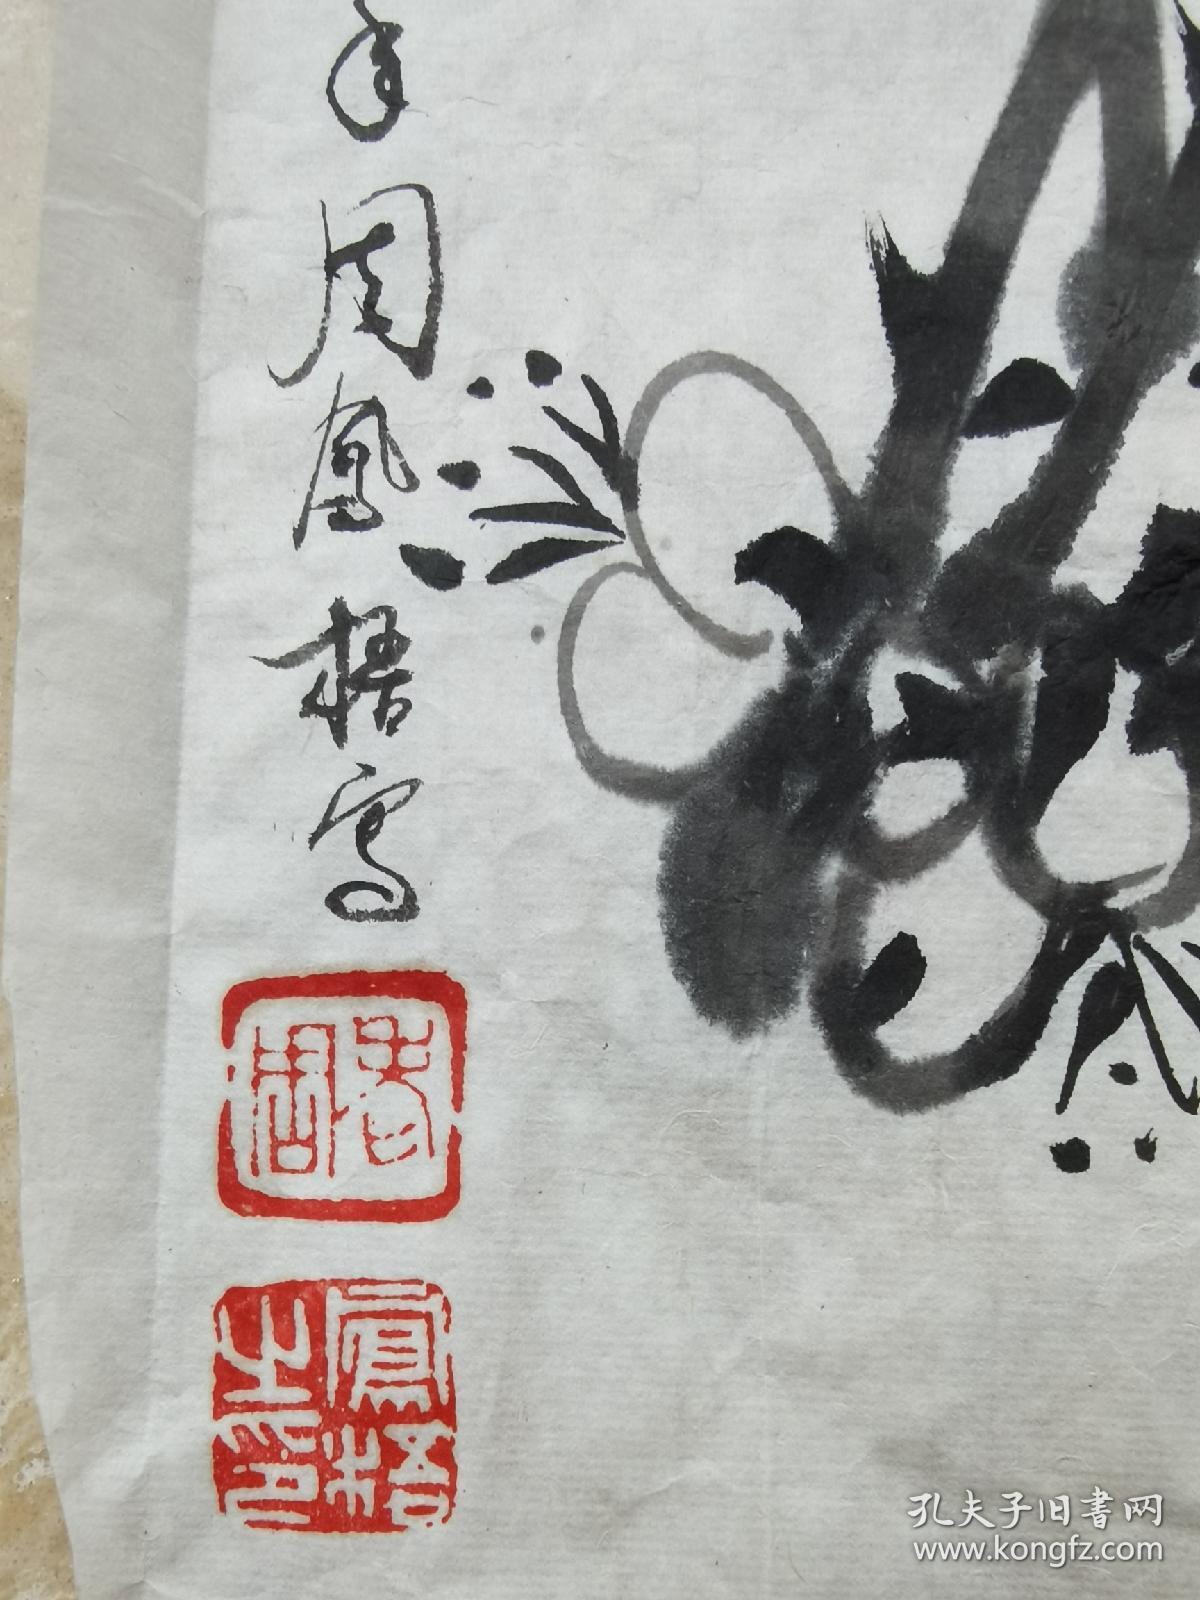 年周凤梧写
老周
凤梧之印
孔夫子旧书网
www.kongfz.com